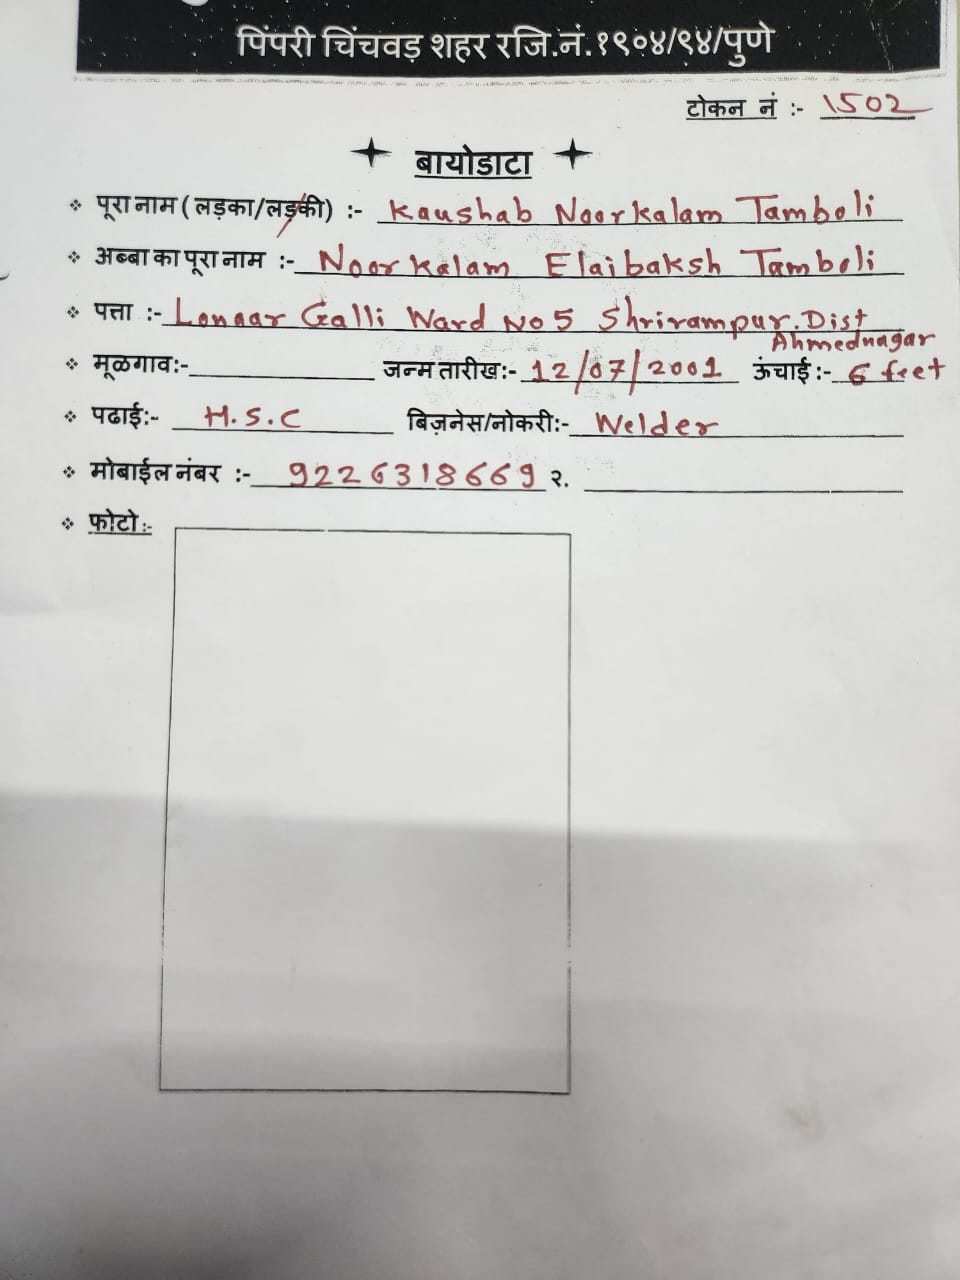 पिंपरी चिंचवड़ शहर रजि.नं.१९०४/९४/पुणे
टोकन नं :- 1502
बायोडाटा
पूरा नाम ( लड़का/लड़की) :- Kaushab Noorkalam Tamboli
अब्बा का पूरा नाम :- Noorkalam Elaibaksh Tamboli
पत्ता :- Lonaar Galli Ward No 5 Shrirampur. Dist
Ahmednagar
मूळगाव:- जन्म तारीख:- 12/07/2001 ऊंचाई :- 6 feet
पढाई:- H.S.C बिज़नेस/नोकरी:- Welder
मोबाईल नंबर :- 9226318669 २.
फोटो:-